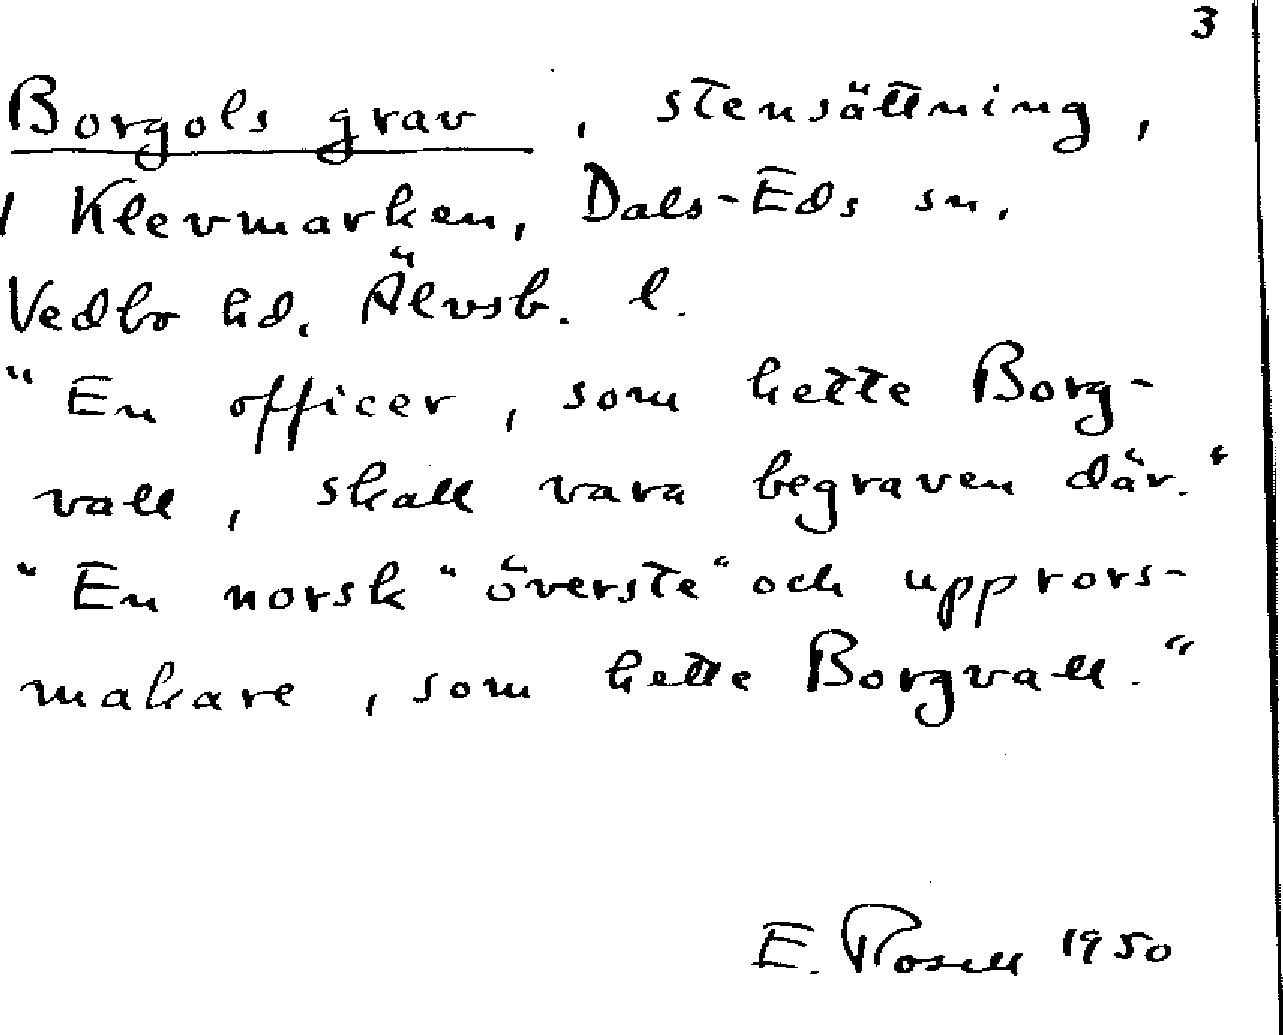 3
Borgols grav, stensättning,
Klevmarken, Dals-Eds sn,
Vedbo hd, Älvsb. l.
"En officer, som hette Borg-
vall, skall vara begraven där."
"En norsk "överste" och upprors-
makare, som hette Borgvall."
E. Rosell 1950